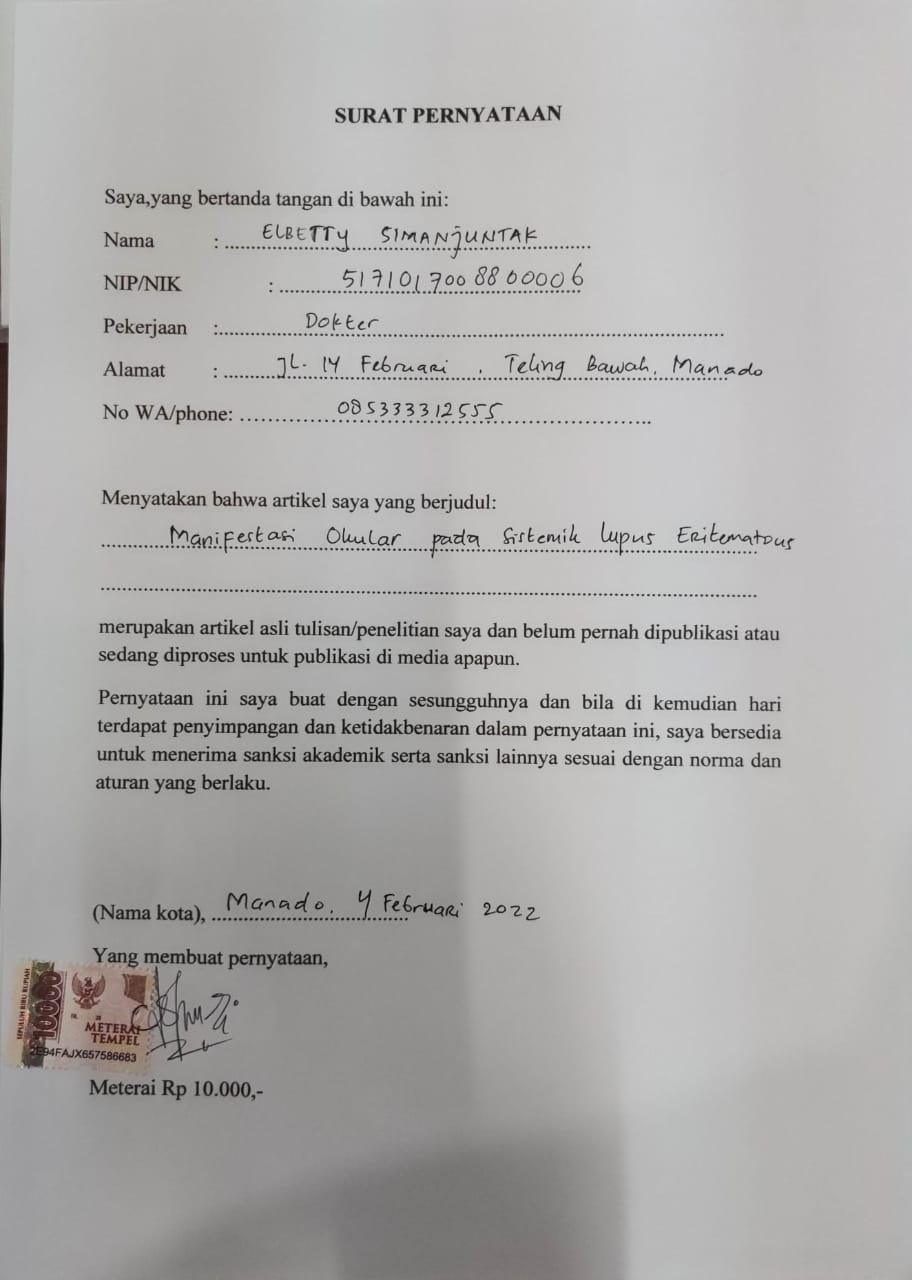 SURAT PERNYATAAN
Saya,yang bertanda tangan di bawah ini:
Nama : ELBETTY SIMANJUNTAK
NIP/NIK : 5171017008800006
Pekerjaan : Dokter
Alamat : JL. 14 Februari, Teling Bawah, Manado
No WA/phone: 085333312555
Menyatakan bahwa artikel saya yang berjudul:
Manifestasi Okular pada Sistemik Lupus Eritematous
merupakan artikel asli tulisan/penelitian saya dan belum pernah dipublikasi atau
sedang diproses untuk publikasi di media apapun.
Pernyataan ini saya buat dengan sesungguhnya dan bila di kemudian hari
terdapat penyimpangan dan ketidakbenaran dalam pernyataan ini, saya bersedia
untuk menerima sanksi akademik serta sanksi lainnya sesuai dengan norma dan
aturan yang berlaku.
(Nama kota), Manado, 4 Februari 2022
Yang membuat pernyataan,
SEPULUH RIBU RUPIAH
10000
METERAI
TEMPEL
2E94FAJX657586683
Meterai Rp 10.000,-